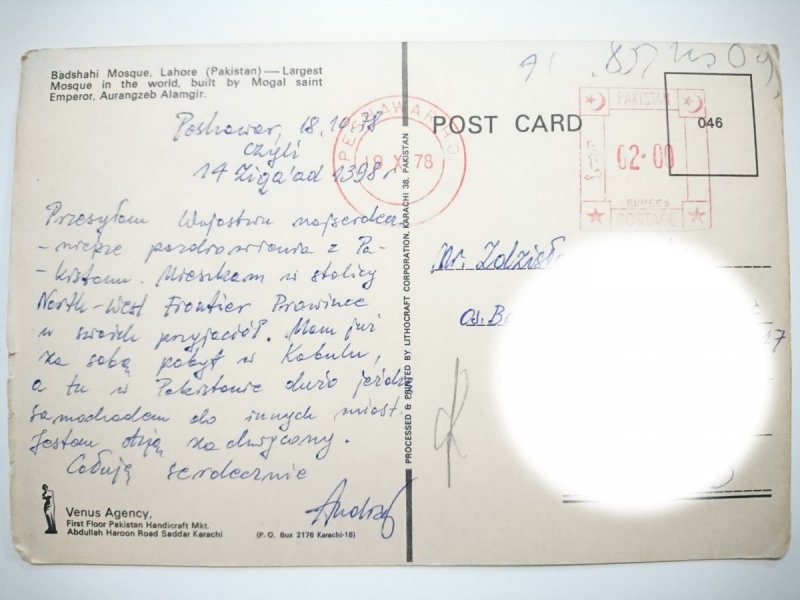 Bādshahi Mosque, Lahore (Pakistan) — Largest
Mosque in the world, built by Mogal saint
Emperor, Aurangzeb Alamgir.
Peshawar, 18.10.78
czyli
14 Ziqa'ad 1398 r
Przesyłam Wujostwu najserdecz
-niejsze pozdrowienia z Pa-
-kistanu. Mieszkam w stolicy
North-West Frontier Prowince
u swoich przyjaciół. Mam już
za sobą pobyt w Kabulu,
a tu w Pakistanie dużo jeżdżę
samochodem do innych miast.
Jestem zachwycony.
Całuję serdecznie
Andrzej
Venus Agency,
First Floor Pakistan Handicraft Mkt.
Abdullah Haroon Road Saddar Karachi
(P. O. Box 2176 Karachi-18)
PROCESSED & PRINTED BY LITHOCRAFT CORPORATION, KARACHI 38, PAKISTAN
POST CARD
PESHAWAR G.P.O.
19 X 78
PAKISTAN
02·00
RUPEES
POSTAGE
046
Dr. Zdzisła
os. B
17